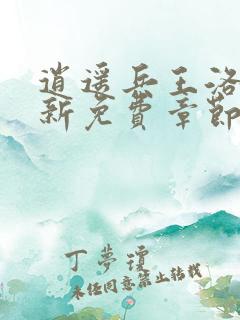 逍遥兵王洛
新免費章節
丁夢瓊
未经同意禁止转载